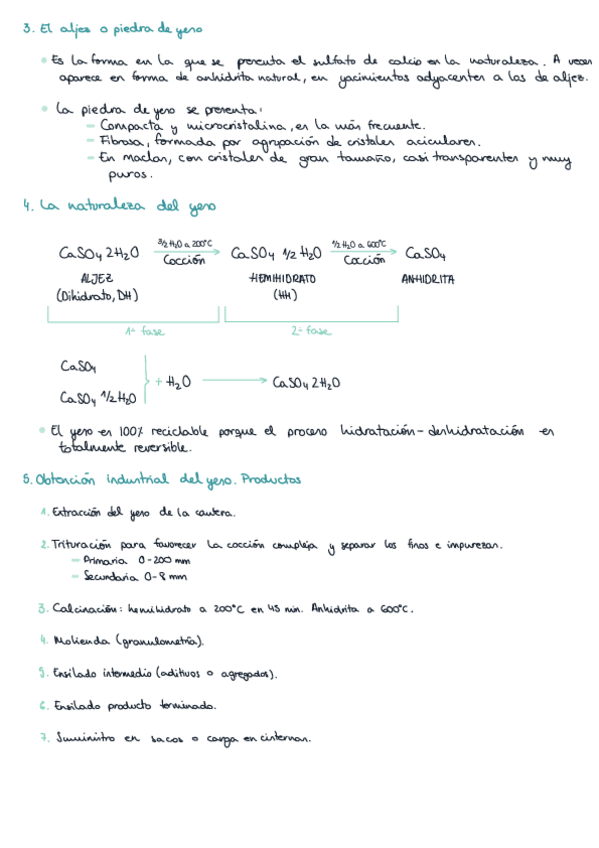 3. El aljez o piedra de yeso
• Es la forma en la que se presenta el sulfato de calcio en la naturaleza. A veces
aparece en forma de anhidrita natural, en yacimientos adyacentes a los de aljez.
• La piedra de yeso se presenta:
– Compacta y microcristalina, es la más frecuente.
– Fibrosa, formada por agrupación de cristales aciculares.
– En maclas, con cristales de gran tamaño, casi transparentes y muy
puros.
4. La naturaleza del yeso
CaSO4 2H2O 3/2 H2O a 200°C Cocción CaSO4 1/2 H2O 1/2 H2O a 600°C Cocción CaSO4
ALJEZ HEMIHIDRATO ANHIDRITA
(Dihidrato, DH) (HH)
1ª fase 2ª fase
CaSO4
+ H2O → CaSO4 2H2O
CaSO4 1/2 H2O
• El yeso es 100% reciclable porque el proceso hidratación-deshidratación es
totalmente reversible.
5. Obtención industrial del yeso. Productos
1. Extracción del yeso de la cantera.
2. Trituración para favorecer la cocción compleja y separar los finos e impurezas.
– Primaria 0-200 mm
– Secundaria 0-8 mm
3. Calcinación: hemihidrato a 200°C en 45 min. Anhidrita a 600°C.
4. Molienda (granulometría).
5. Ensilado intermedio (aditivos o agregados).
6. Ensilado producto terminado.
7. Suministro en sacos o carga en cisternas.